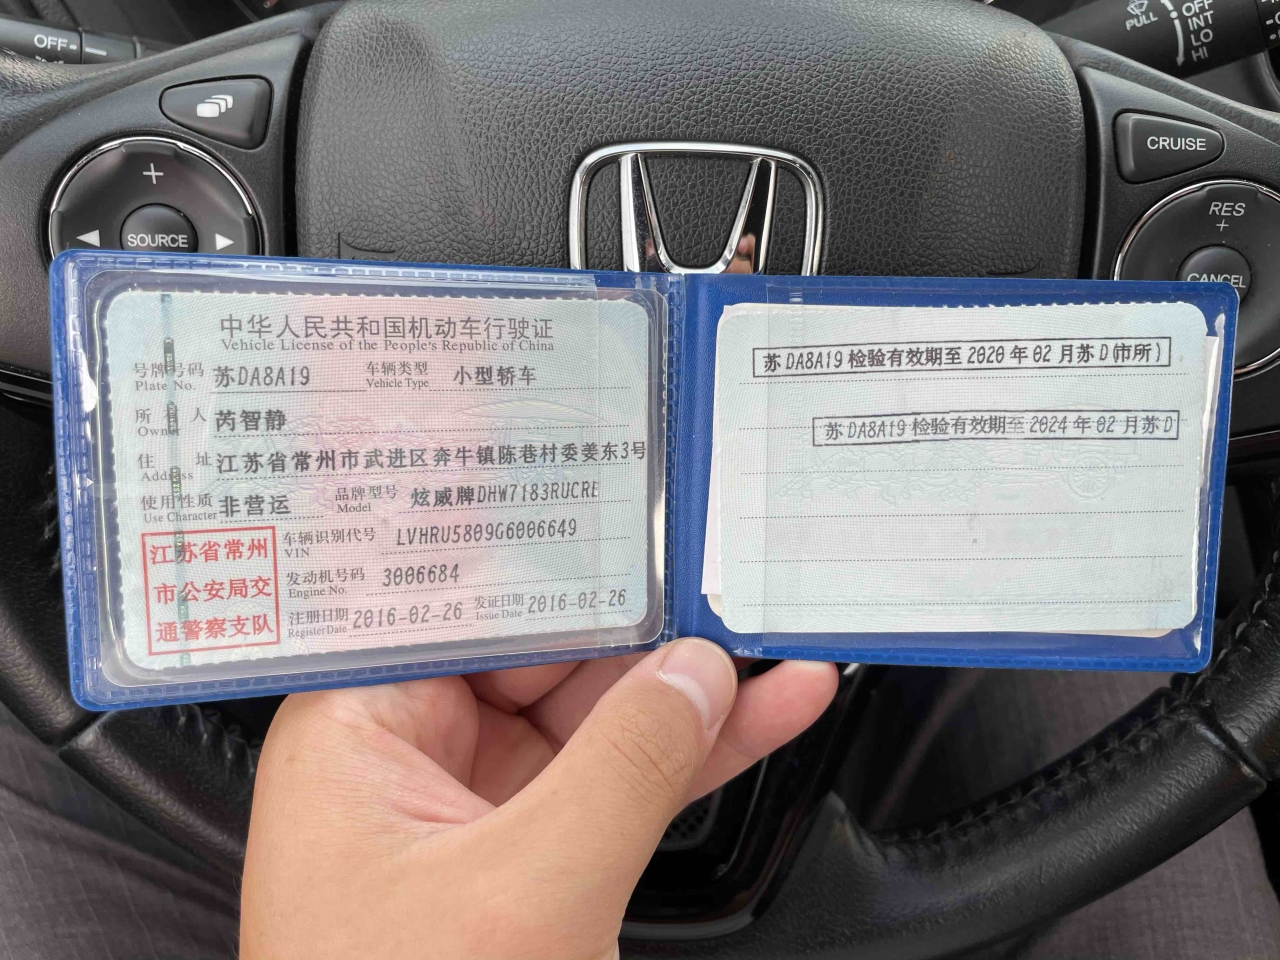 OFF
PULL
OFF
INT
LO
HI
+
SOURCE
CRUISE
RES
+
CANCEL
中华人民共和国机动车行驶证
Vehicle License of the People's Republic of China
号牌号码 苏DA8A19 车辆类型 小型轿车
Plate No. Vehicle Type
所有人 芮智静
Owner
住址 江苏省常州市武进区奔牛镇陈巷村委姜东3号
Address
使用性质 非营运 品牌型号 炫威牌DHW7183RUCRE
Use Character Model
江苏省常州
市公安局交
通警察支队
车辆识别代号 LVHRU5809G6006649
VIN
发动机号码 3006684
Engine No.
注册日期 2016-02-26 发证日期 2016-02-26
Register Date Issue Date
苏DA8A19检验有效期至2020年02月苏D(市所)
苏DA8A19检验有效期至2024年02月苏D